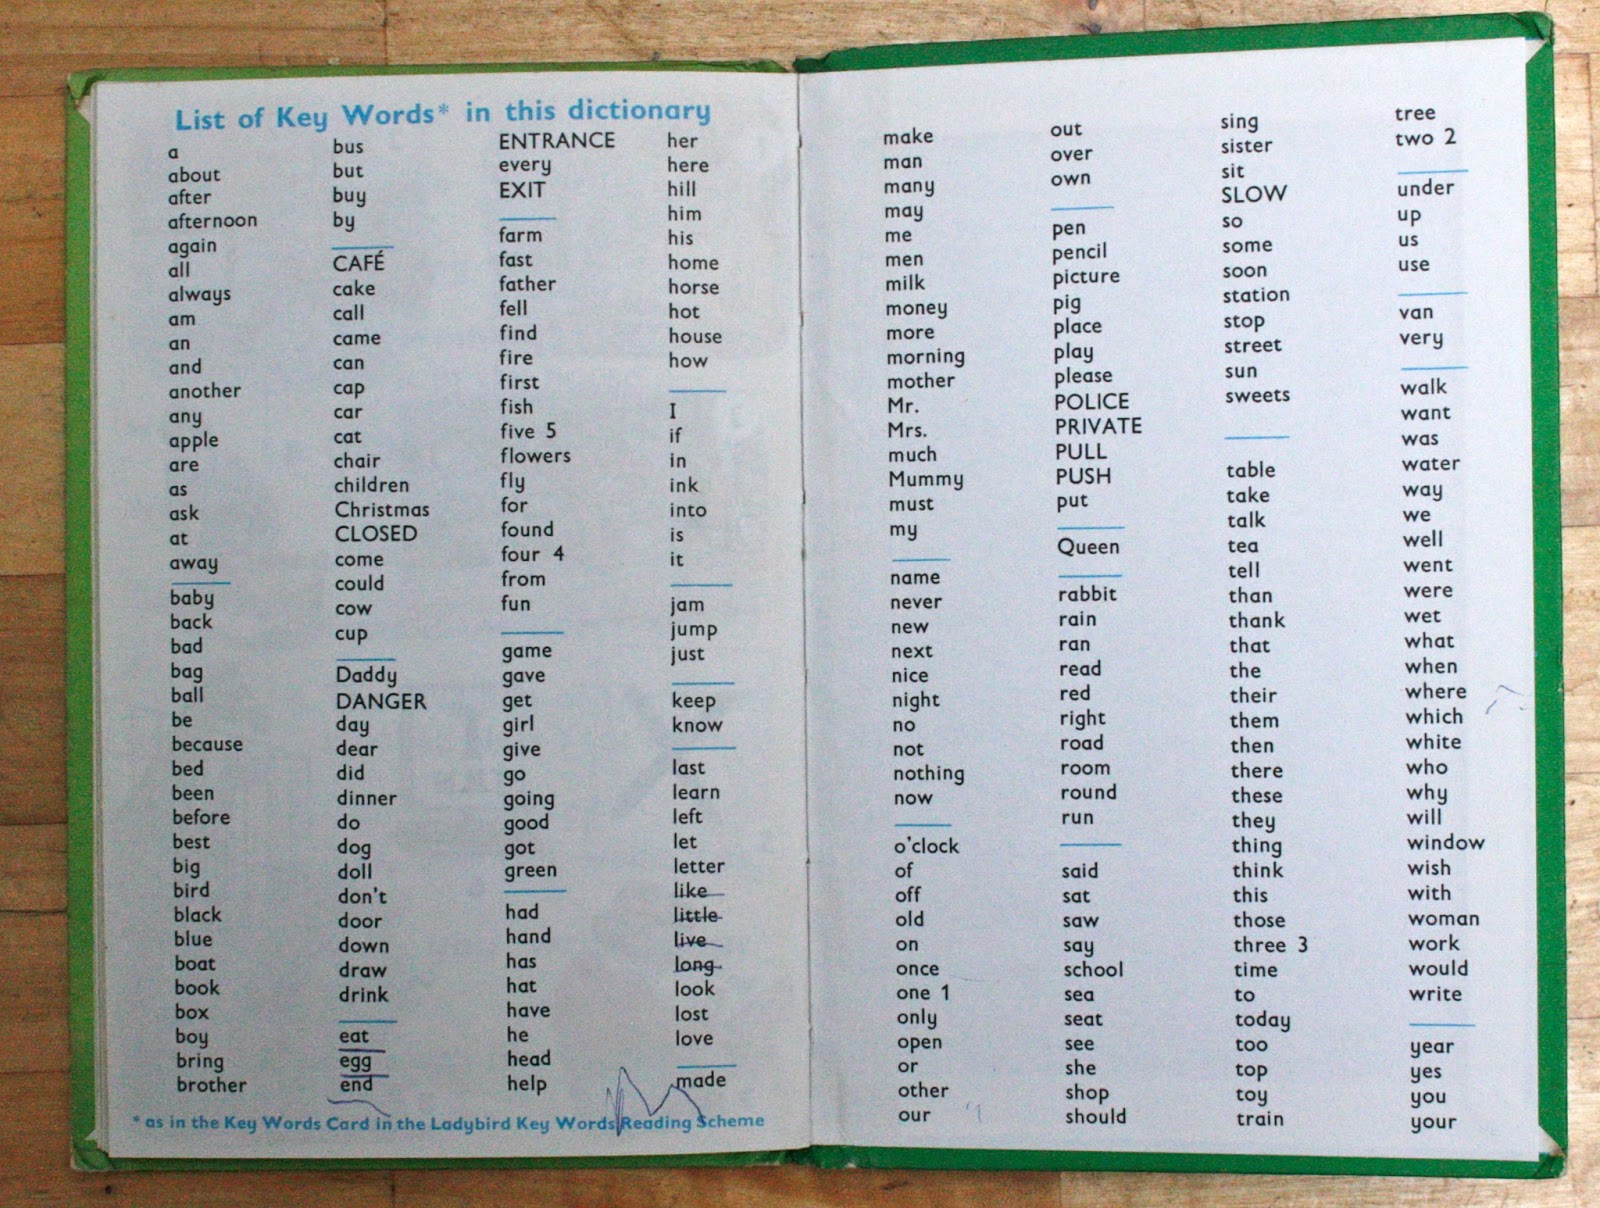 List of Key Words* in this dictionary
a
about
after
afternoon
again
all
always
am
an
and
another
any
apple
are
as
ask
at
away
baby
back
bad
bag
ball
be
because
bed
been
before
best
big
bird
black
blue
boat
book
box
boy
bring
brother
bus
but
buy
by
CAFÉ
cake
call
came
can
cap
car
cat
chair
children
Christmas
CLOSED
come
could
cow
cup
Daddy
DANGER
day
dear
did
dinner
do
dog
doll
don't
door
down
draw
drink
eat
egg
end
ENTRANCE
every
EXIT
farm
fast
father
fell
find
fire
first
fish
five 5
flowers
fly
for
found
four 4
from
fun
game
gave
get
girl
give
go
going
good
got
green
had
hand
has
hat
have
he
head
help
her
here
hill
him
his
home
horse
hot
house
how
I
if
in
ink
into
is
it
jam
jump
just
keep
know
last
learn
left
let
letter
like
little
live
long
look
lost
love
made
* as in the Key Words Card in the Ladybird Key Words Reading Scheme
make
man
many
may
me
men
milk
money
more
morning
mother
Mr.
Mrs.
much
Mummy
must
my
name
never
new
next
nice
night
no
not
nothing
now
o'clock
of
off
old
on
once
one 1
only
open
or
other
our
out
over
own
pen
pencil
picture
pig
place
play
please
POLICE
PRIVATE
PULL
PUSH
put
Queen
rabbit
rain
ran
read
red
right
road
room
round
run
said
sat
saw
say
school
sea
seat
see
she
shop
should
sing
sister
sit
SLOW
so
some
soon
station
stop
street
sun
sweets
table
take
talk
tea
tell
than
thank
that
the
their
them
then
there
these
they
thing
think
this
those
three 3
time
to
today
too
top
toy
train
tree
two 2
under
up
us
use
van
very
walk
want
was
water
way
we
well
went
were
wet
what
when
where
which
white
who
why
will
window
wish
with
woman
work
would
write
year
yes
you
your